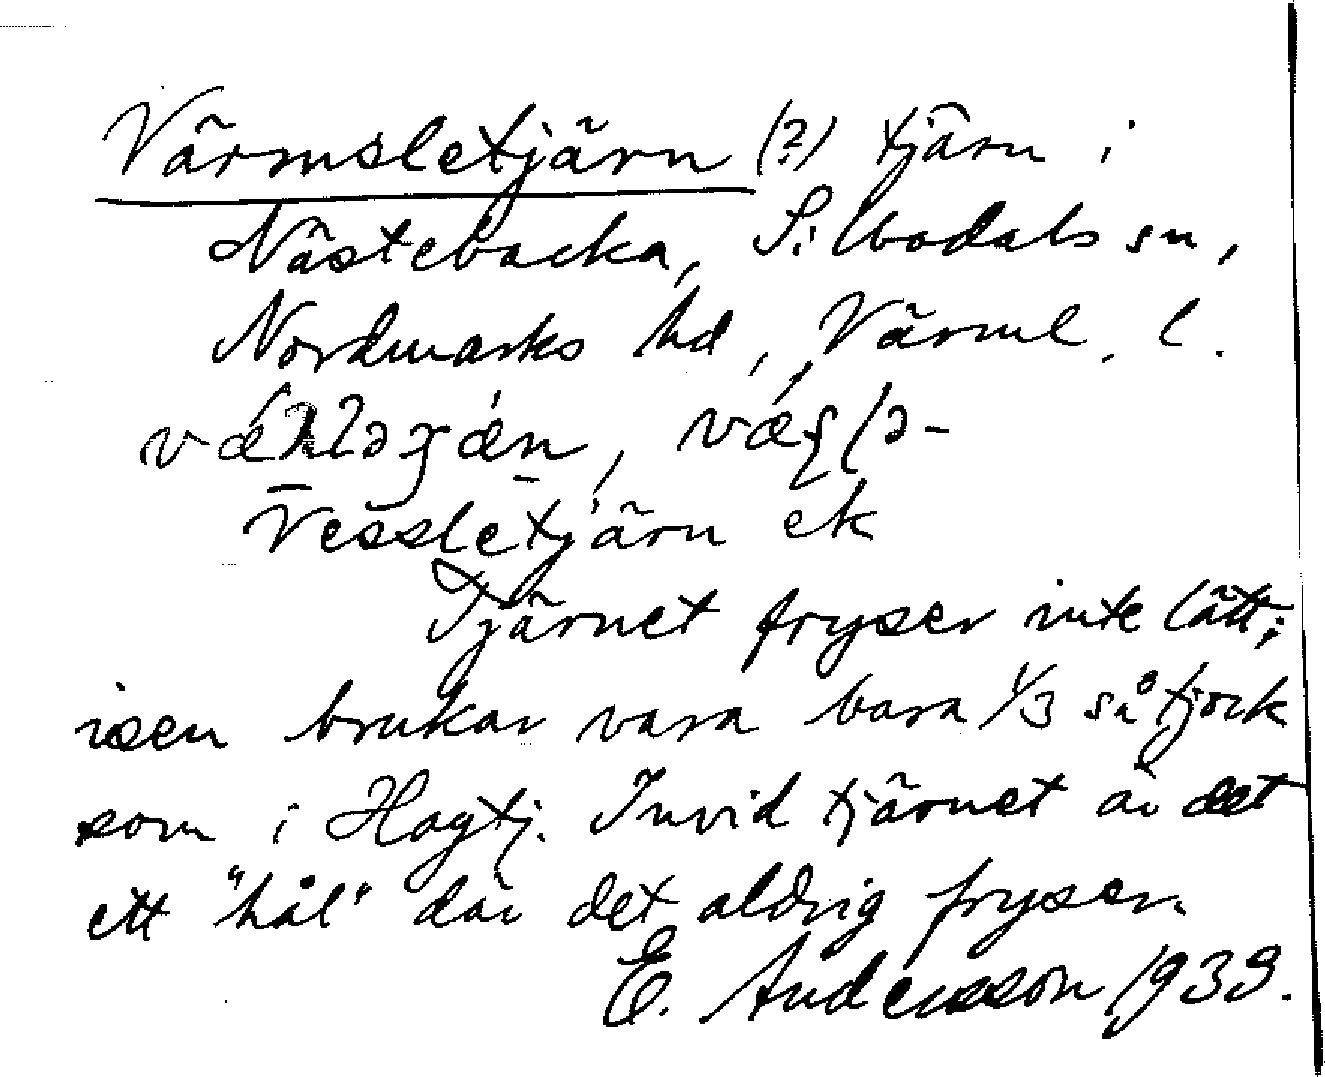 Värmsletjärn (?) tjärn i
Nästebacka, Silbodals sn,
Nordmarks hd, Värml. l.
Vessletjärn ek
Tjärnet fryser inte lätt;
isen brukar vara bara 1/3 så tjock
som i Hagtj. Invid tjärnet är det
ett "hål" där det aldrig fryser.
E. Andersson 1939.